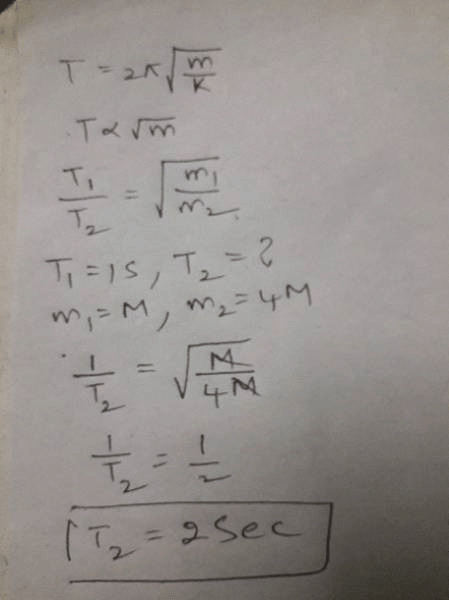 T = 2π√(m/k)
T ∝ √m
T₁/T₂ = √(m₁/m₂)
T₁ = 1S, T₂ = ?
m₁ = M, m₂ = 4M
1/T₂ = √(M/4M)
1/T₂ = 1/2
T₂ = 2 Sec